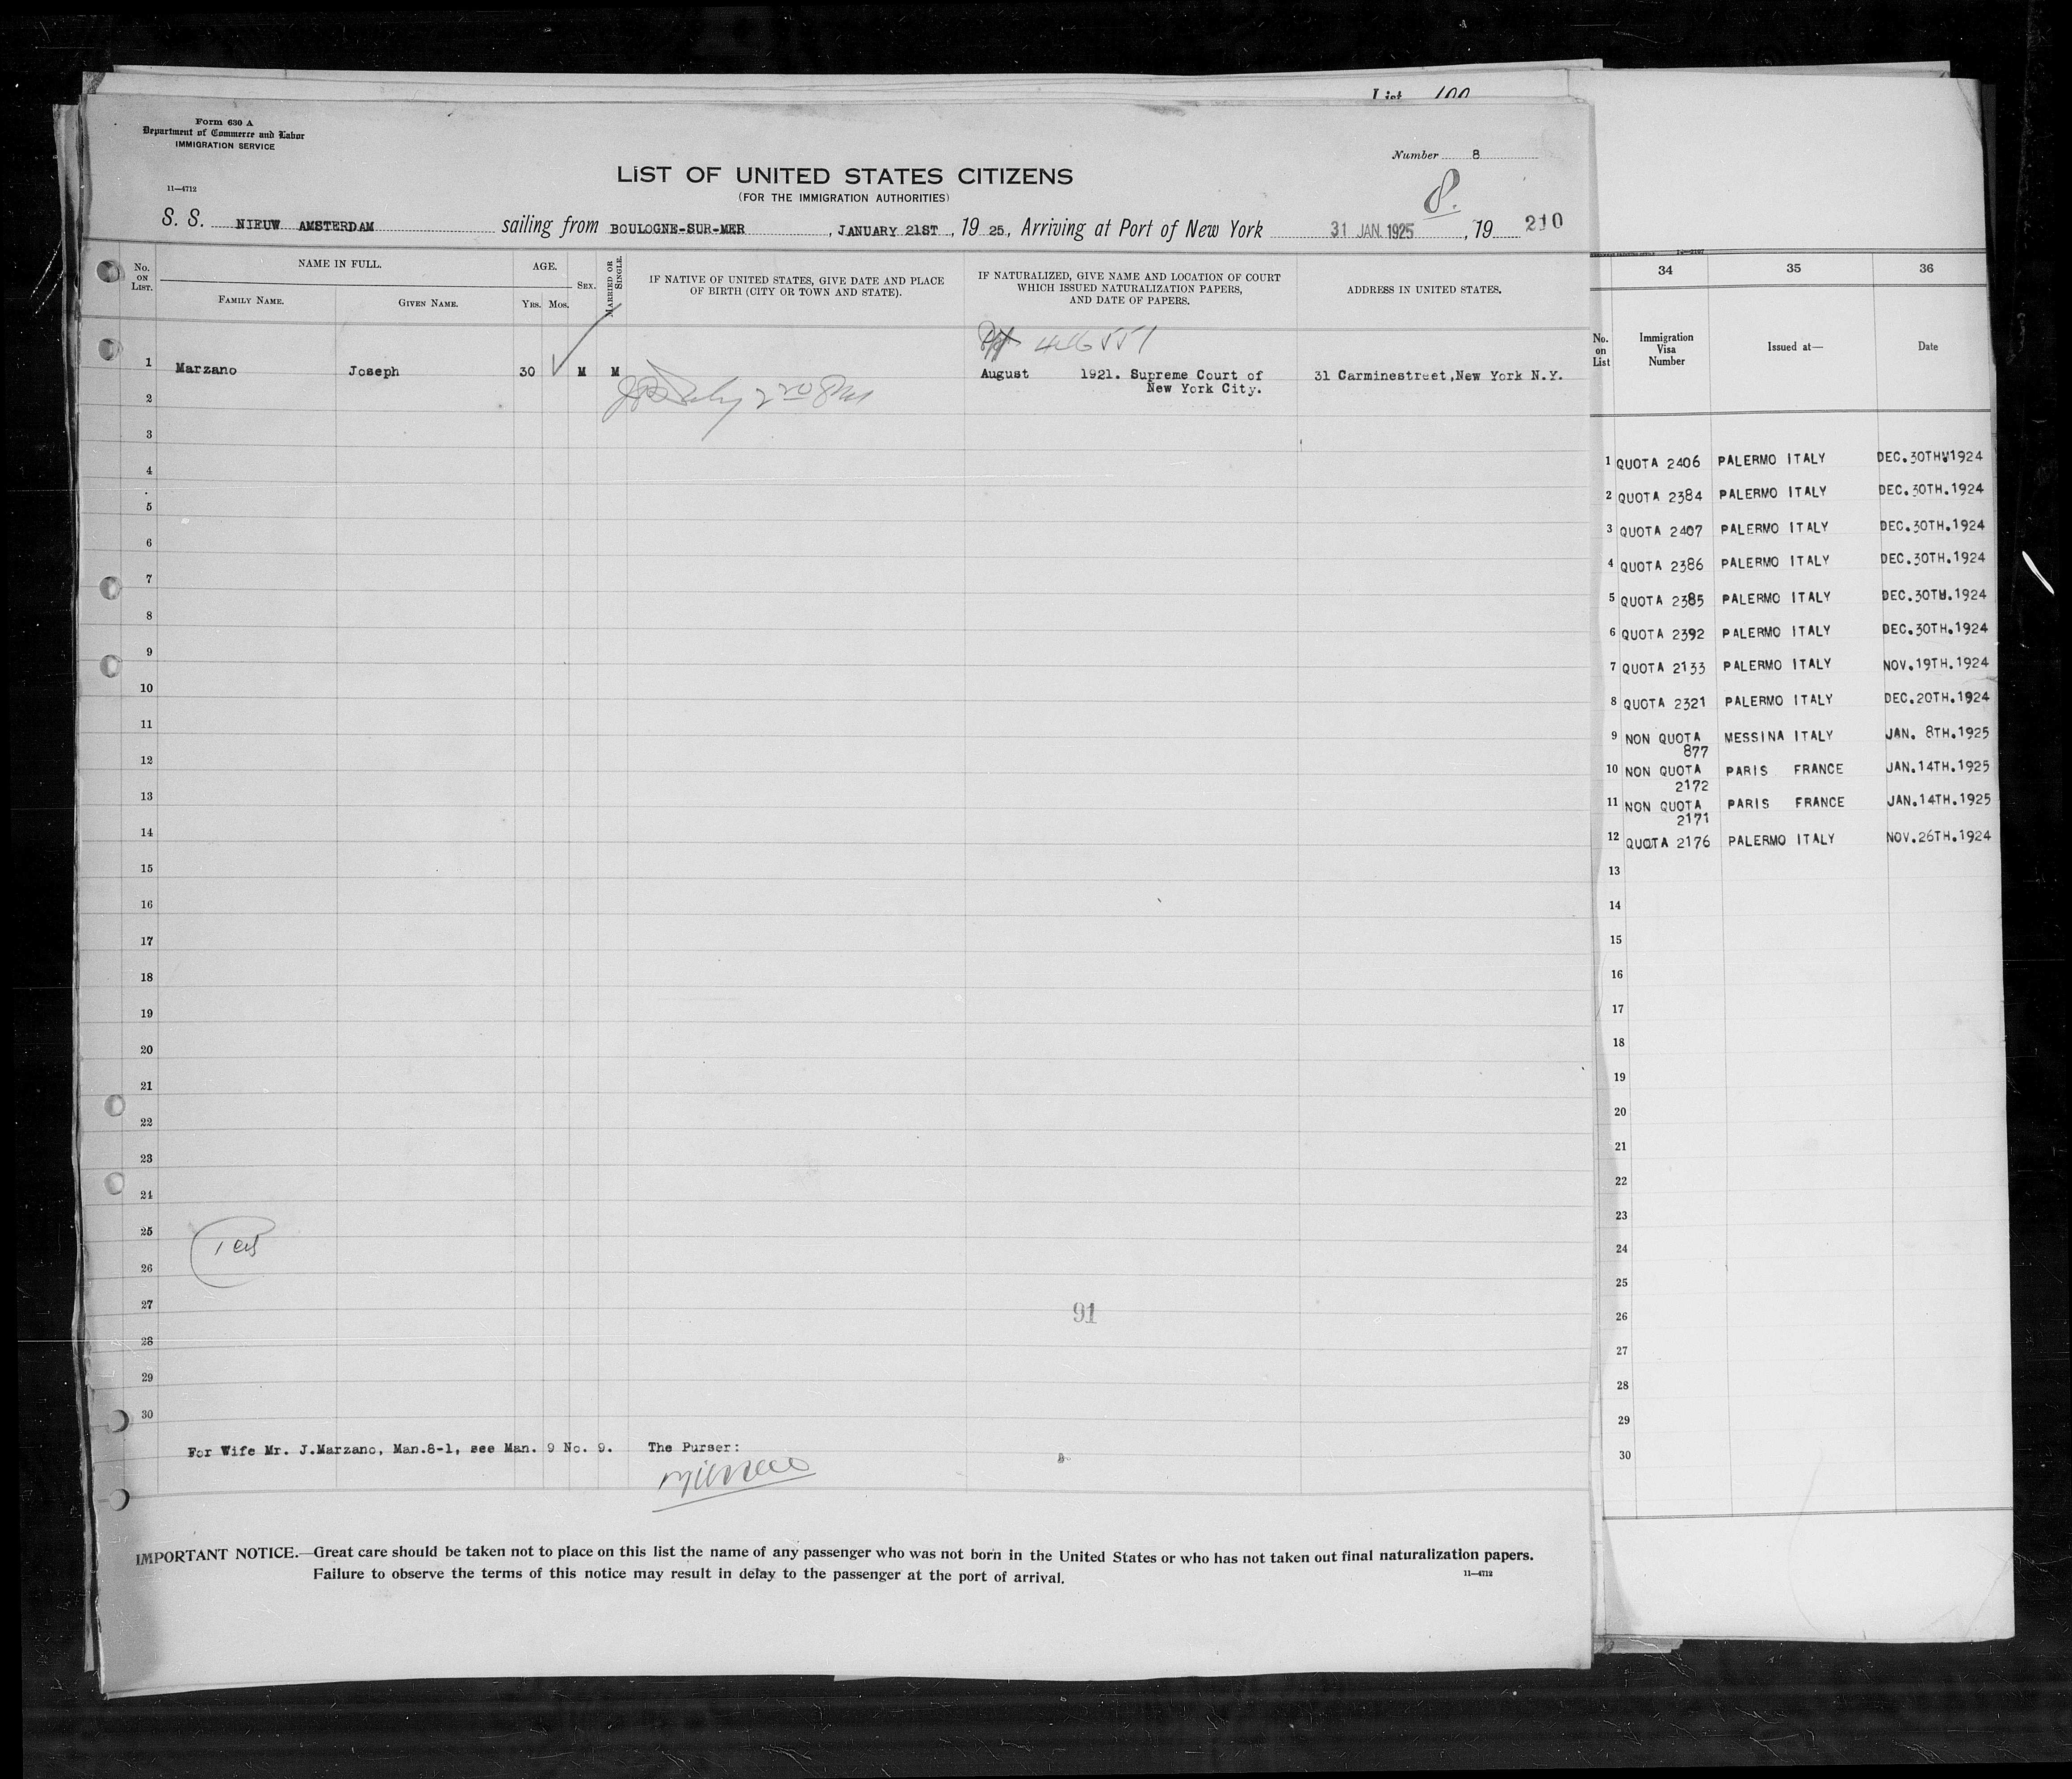 List 100
Form 630 A
Department of Commerce and Labor
IMMIGRATION SERVICE
Number 8
11—4712
LIST OF UNITED STATES CITIZENS
(FOR THE IMMIGRATION AUTHORITIES)
8.
S. S. NIEUW AMSTERDAM sailing from BOULOGNE-SUR-MER, JANUARY 21ST, 19 25, Arriving at Port of New York 31 JAN. 1925, 19 210
No. ON LIST.
NAME IN FULL.
FAMILY NAME.
GIVEN NAME.
AGE.
YRS. MOS.
SEX.
MARRIED OR SINGLE.
IF NATIVE OF UNITED STATES, GIVE DATE AND PLACE
OF BIRTH (CITY OR TOWN AND STATE).
IF NATURALIZED, GIVE NAME AND LOCATION OF COURT
WHICH ISSUED NATURALIZATION PAPERS,
AND DATE OF PAPERS.
ADDRESS IN UNITED STATES.
1 Marzano Joseph 30 M M August 1921. Supreme Court of 31 Carminestreet,New York N.Y.
New York City.
2
3
4
5
6
7
8
9
10
11
12
13
14
15
16
17
18
19
20
21
22
23
24
25
26
27
91
28
29
30
For Wife Mr. J.Marzano, Man.8-1, see Man. 9 No. 9. The Purser:
IMPORTANT NOTICE.—Great care should be taken not to place on this list the name of any passenger who was not born in the United States or who has not taken out final naturalization papers.
Failure to observe the terms of this notice may result in delay to the passenger at the port of arrival.
11—4712
34 35 36
No. on List
Immigration Visa Number
Issued at—
Date
1 QUOTA 2406 PALERMO ITALY DEC.30TH.1924
2 QUOTA 2384 PALERMO ITALY DEC.30TH.1924
3 QUOTA 2407 PALERMO ITALY DEC.30TH.1924
4 QUOTA 2386 PALERMO ITALY DEC.30TH.1924
5 QUOTA 2385 PALERMO ITALY DEC.30TH.1924
6 QUOTA 2392 PALERMO ITALY DEC.30TH.1924
7 QUOTA 2133 PALERMO ITALY NOV.19TH.1924
8 QUOTA 2321 PALERMO ITALY DEC.20TH.1924
9 NON QUOTA MESSINA ITALY JAN. 8TH.1925
877
10 NON QUOTA PARIS FRANCE JAN.14TH.1925
2172
11 NON QUOTA PARIS FRANCE JAN.14TH.1925
2171
12 QUOTA 2176 PALERMO ITALY NOV.26TH.1924
13
14
15
16
17
18
19
20
21
22
23
24
25
26
27
28
29
30